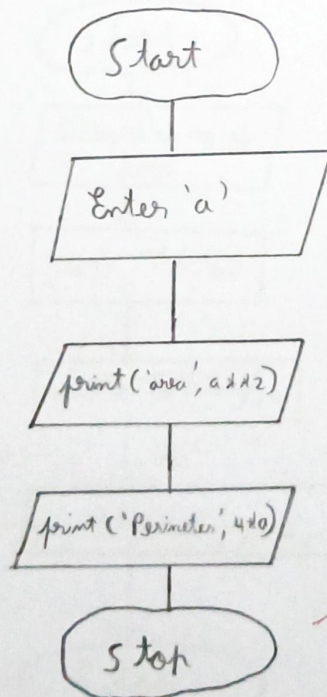 Start
Enter 'a'
print('area', a**2)
print('Perimeter', 4*a)
Stop